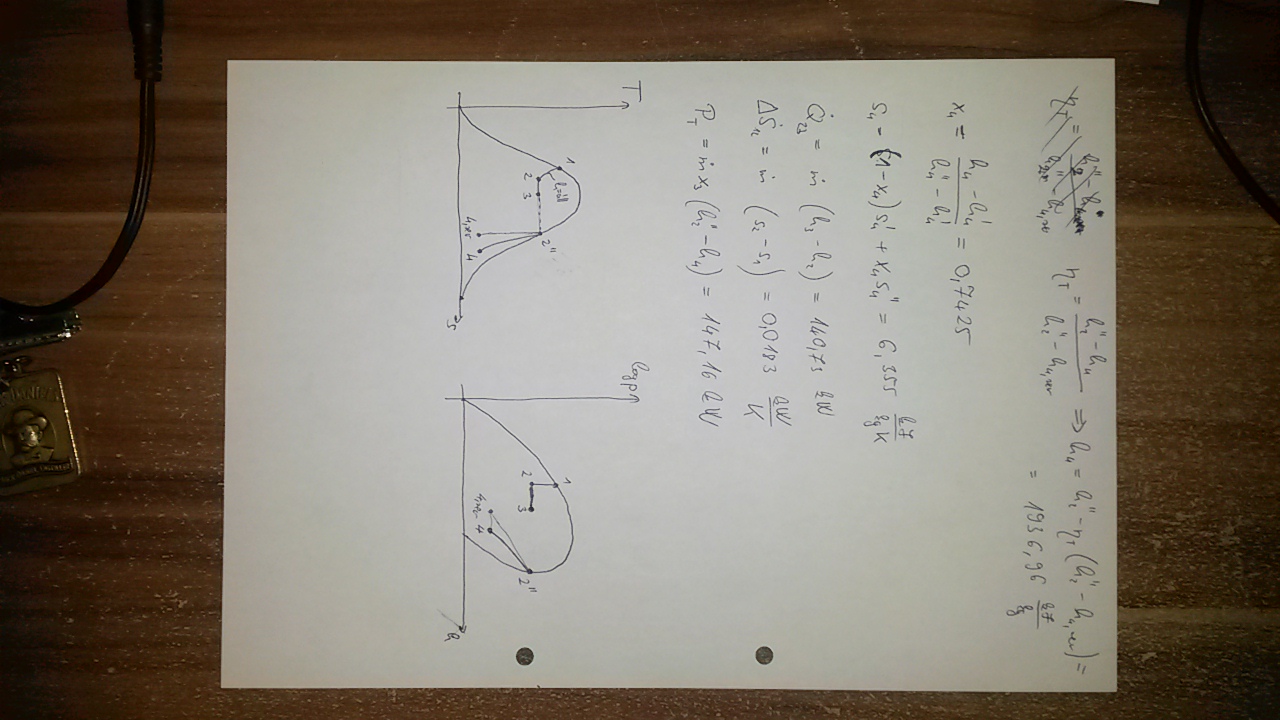 η_T = (h₂'' - h₄)/(h₂'' - h₄,rev) ⇒ h₄ = h₂'' - η_T (h₂'' - h₄,rev) =
= 1936,96 kJ/kg
x₄ = (h₄ - h₄')/(h₄'' - h₄') = 0,7425
s₄ = (1-x₄) s₄' + x₄ s₄'' = 6,355 kJ/kg K
Q̇₂₃ = ṁ (h₃ - h₂) = 140,73 kW
ΔṠ₁₂ = ṁ (s₂ - s₁) = 0,0183 kW/K
P_T = ṁ x₃ (h₂'' - h₄) = 147,16 kW
T
1
h=
2
3
2''
4,rev
4
s
log p
1
2
3
4,rev
4
2''
h